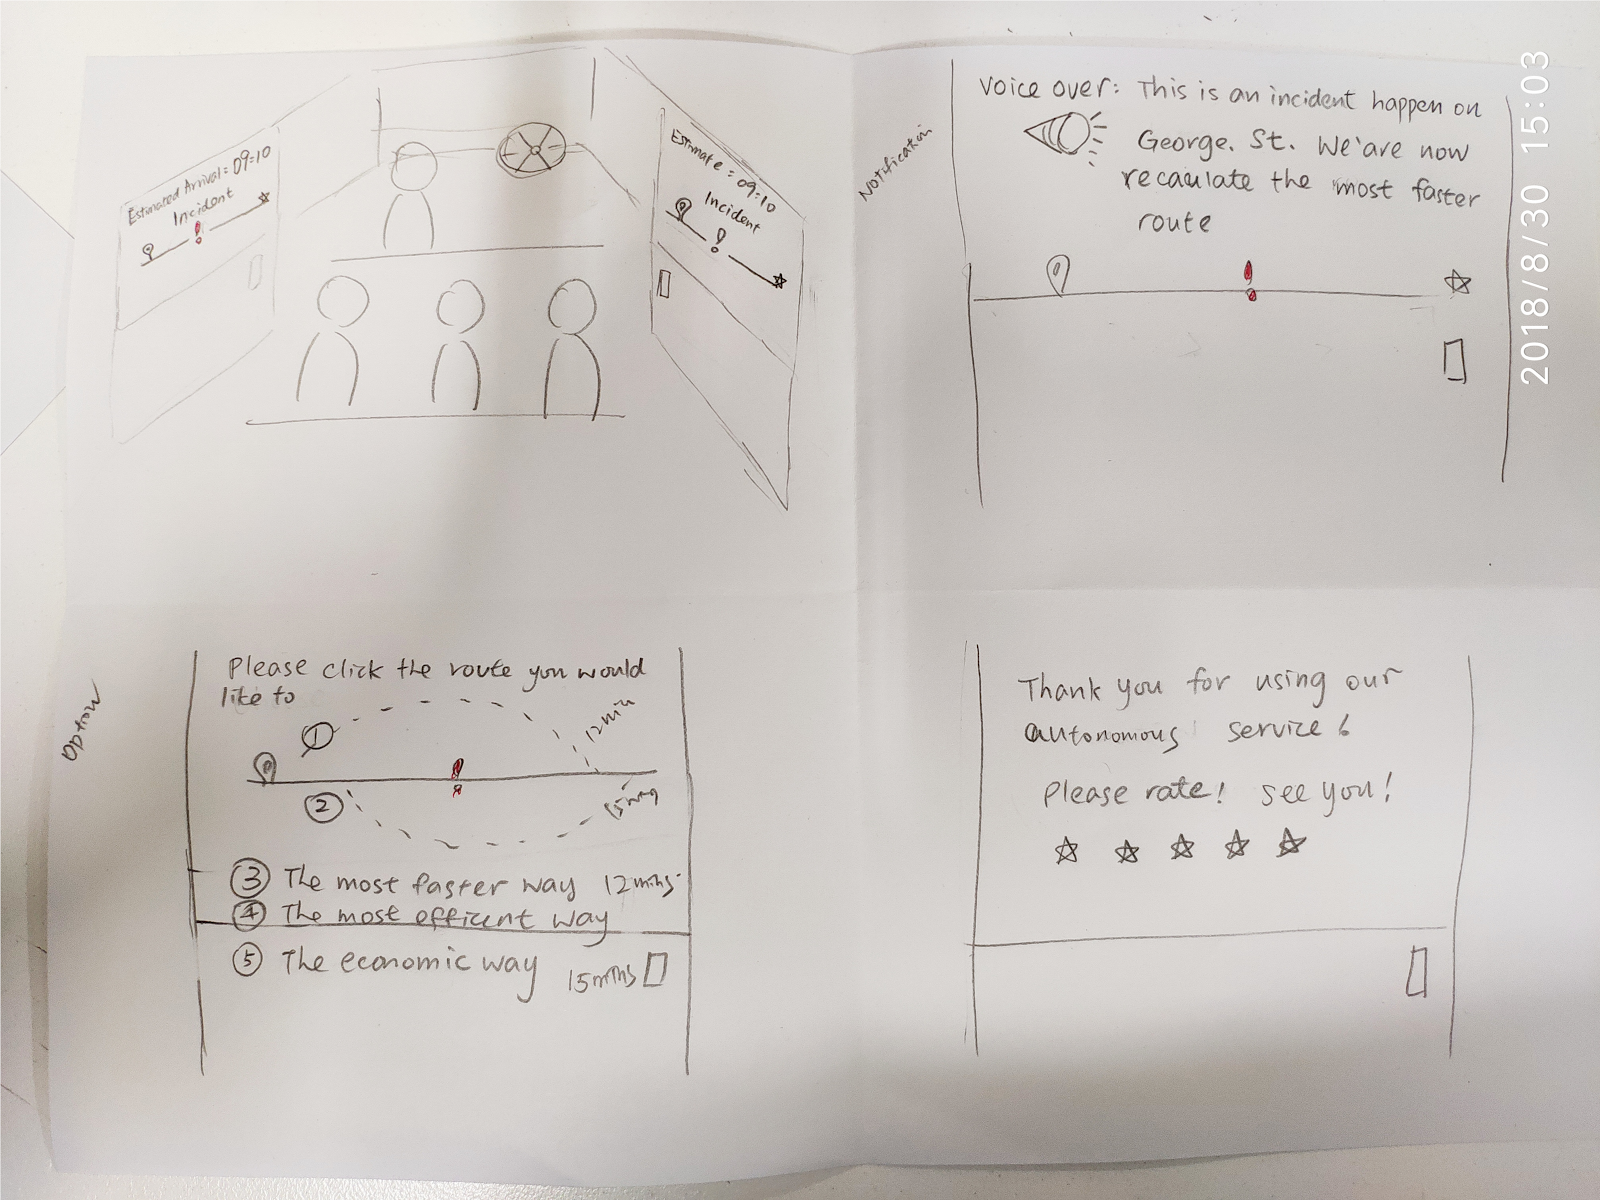 Estimated Arrival = 09:10
Incident
Estimate = 09:10
Incident
Notification
Voice over: This is an incident happen on
George. St. We'are now
recaulate the most faster
route
2018/8/30 15:03
Option
Please click the route you would
like to
1
12min
2
15min
3 The most faster way 12mins
4 The most efficent way
5 The economic way 15mins
Thank you for using our
autonomous service!
Please rate! see you!